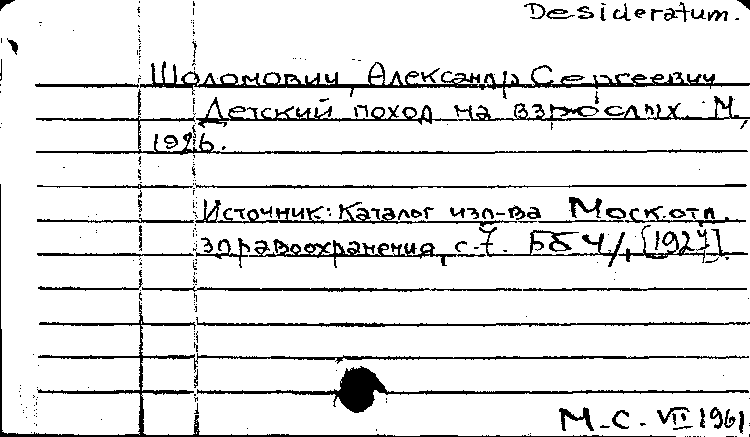 Desideratum.
Шоломович, Александр Сергеевич
Детский поход на взрослых. М.,
1926.
Источник: Каталог изд-ва Моск. отд.
здравоохранения, с. 7. [1927].
М. С. VII 1961